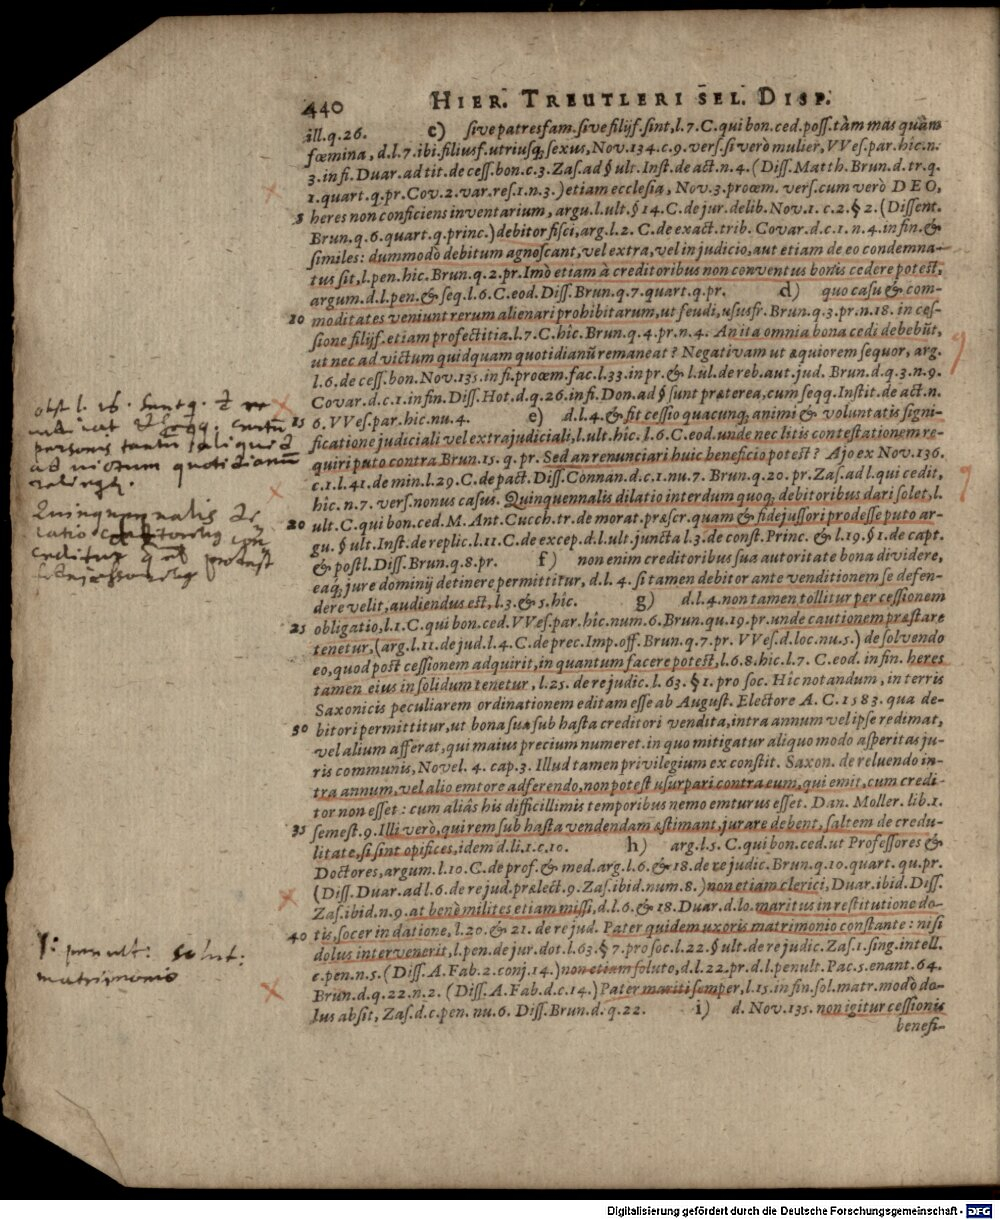 440 HIER. TREUTLERI SEL. DISP.
ill.q.26. c) sive patresfam.sive filijf.sint,l.7.C.qui bon.ced.poss.tàm mas quàm
fœmina, d.l.7.ibi.filiusf.utriusq; sexus, Nov.134.c.9.vers.si verò mulier, VVes.par.hîc.n.
3.in fi. Duar.ad tit.de cess.bon.c.3. Zas.ad § ult. Inst.de act.n.4. (Diss.Matth.Brun.d.tr.q.
1.quart.q.pr.Cov.2.var.res.1.n.3.) etiam ecclesia, Nov.3.proœm. vers.cum verò DEO,
5 heres non conficiens inventarium, argu.l.ult.§ 14.C.de jur.delib.Nov.1. c.2.§ 2. (Dissent.
Brun.q.6.quart.q.princ.) debitor fisci, arg.l.2. C.de exact.trib. Covar.d.c.1. n.4.in fin.&
similes: dummodò debitum agnoscant, vel extra, vel in judicio, aut etiam de eo condemna-
tus sit, l.pen.hic.Brun.q.2.pr. Imò etiam à creditoribus non conventus bonis cedere potest,
argum.d.l.pen.& seq.l.6.C.eod.Diss.Brun.q.7.quart.q.pr. d) quo casu & com-
10 moditates veniunt rerum alienari prohibitarum, ut feudi, ususfr.Brun.q.3.pr.n.18. in ces-
sione filijf.etiam profectitia.l.7.C.hîc.Brun.q.4.pr.n.4. An ita omnia bona cedi debebũt,
ut nec ad victum quidquam quotidianũ remaneat? Negativam ut æquiorem sequor, arg.
l.6.de cess.bon.Nov.135.in fi.proœm.fac.l.33.in pr.& l.ul.de reb.aut.jud. Brun.d.q.3.n.9.
Covar.d.c.1.in fin. Diss.Hot.d.q.26.in fi.Don.ad § sunt præterea, cum seqq.Instit.de act.n.
15 6.VVes.par.hic.nu.4. e) d.l.4.& fit cessio quacunq; animi & voluntatis signi-
ficatione judiciali vel extrajudiciali, l.ult.hîc. l.6.C.eod.unde nec litis contestationem re-
quiri puto contra Brun.15. q.pr. Sed an renunciari huic beneficio potest? Ajo ex Nov.136.
c.1.l.41.de min.l.29.C.de pact. Diss.Connan.d.c.1.nu.7. Brun.q.20.pr.Zas.ad l.qui cedit,
hîc.n.7. vers.nonus casus. Quinquennalis dilatio interdum quoq; debitoribus dari solet, l.
20 ult.C.qui bon.ced.M.Ant.Cucch.tr.de morat.præscr.quam & fidejussori prodesse puto ar-
gu. § ult.Inst.de replic.l.11.C.de excep.d.l.ult.juncta l.3.de const.Princ. & l.19.§ 1.de capt.
& postl. Diss.Brun.q.8.pr. f) non enim creditoribus sua autoritate bona dividere,
eaq; jure dominij detinere permittitur, d.l.4. si tamen debitor ante venditionem se defen-
dere velit, audiendus est, l.3.& 5.hîc. g) d.l.4.non tamen tollitur per cessionem
25 obligatio, l.1.C.qui bon.ced.VVes.par.hîc.num.6.Brun.qu.19.pr.unde cautionem præstare
tenetur, (arg.l.11.de jud.l.4.C.de prec.Imp.off.Brun.q.7.pr. VVes.d.loc.nu.5.) de solvendo
eo, quod post cessionem adquirit, in quantum facere potest, l.6.8.hic.l.7. C.eod.in fin. heres
tamen eius in solidum tenetur, l.25. de re judic.l.63.§ 1.pro soc. Hic notandum, in terris
Saxonicis peculiarem ordinationem editam esse ab August. Electore A. C. 1583. qua de-
30 bitori permittitur, ut bona sua sub hasta creditori vendita, intra annum vel ipse redimat,
vel alium afferat, qui maius precium numeret. in quo mitigatur aliquo modo asperitas ju-
ris communis, Novel. 4. cap.3. Illud tamen privilegium ex constit. Saxon. de reluendo in-
tra annum, vel alio emtore adferendo, non potest usurpari contra eum, qui emit, cum credi-
tor non esset: cum aliâs his difficillimis temporibus nemo emturus esset. Dan. Moller. lib.1.
35 semest.9. Illi verò, qui rem sub hasta vendendam æstimant, jurare debent, saltem de credu-
litate, si sint opifices, idem d.li.1.c.10. h) arg.l.5. C.qui bon.ced.ut Professores &
Doctores, argum.l.10.C.de prof.& med.arg.l.6.& 18.de re judic.Brun.q.10.quart.qu.pr.
(Diss.Duar.ad l.6.de re jud.prælect.9.Zas.ibid.num.8.) non etiam clerici, Duar.ibid.Diss.
Zas.ibid.n.9.at benè milites etiam missi, d.l.6.& 18.Duar.d.lo.maritus in restitutione do-
40 tis, socer in datione, l.20.& 21. de re jud. Pater quidem uxoris matrimonio constante: nisi
dolus intervenerit, l.pen.de jur.dot.l.63.§ 7.pro soc.l.22.§ ult.de re judic.Zas.1.sing.intell.
c.pen.n.5. (Diss.A.Fab.2.conj.14.) non etiam soluto, d.l.22.pr.d.l.penult.Pac.5.enant.64.
Brun.d.q.22.n.2. (Diss.A.Fab.d.c.14.) Pater mariti semper, l.15.in fin.sol.matr.modò do-
lus absit, Zas.d.c.pen. nu.6. Diss.Brun.d.q.22. i) d. Nov.135. non igitur cessionis
benefi-
obst. l. 16.
personis tantũ aliquid
ad victum quotidianũ
Quinquennalis di-
latio
l: penult: solut:
matrimonio
Digitalisierung gefördert durch die Deutsche Forschungsgemeinschaft - DFG